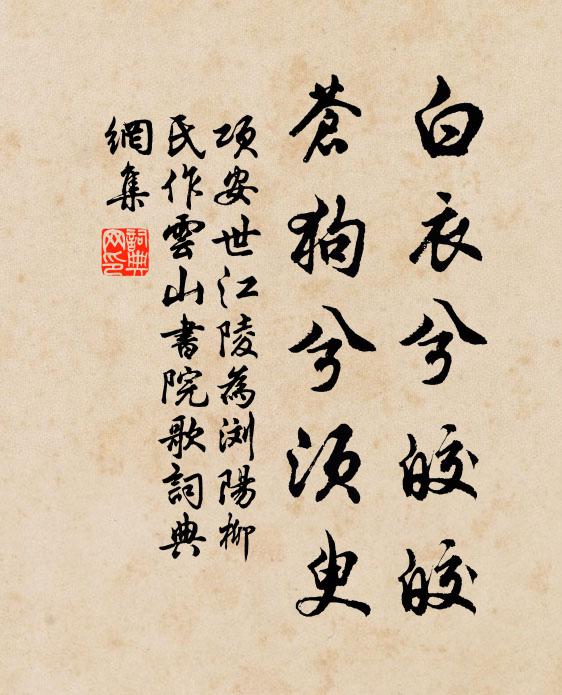 白衣兮皎皎
蒼狗兮須臾
項安世江陵為浏陽柳
氏作雲山書院歌詞典
網集
詞典網印